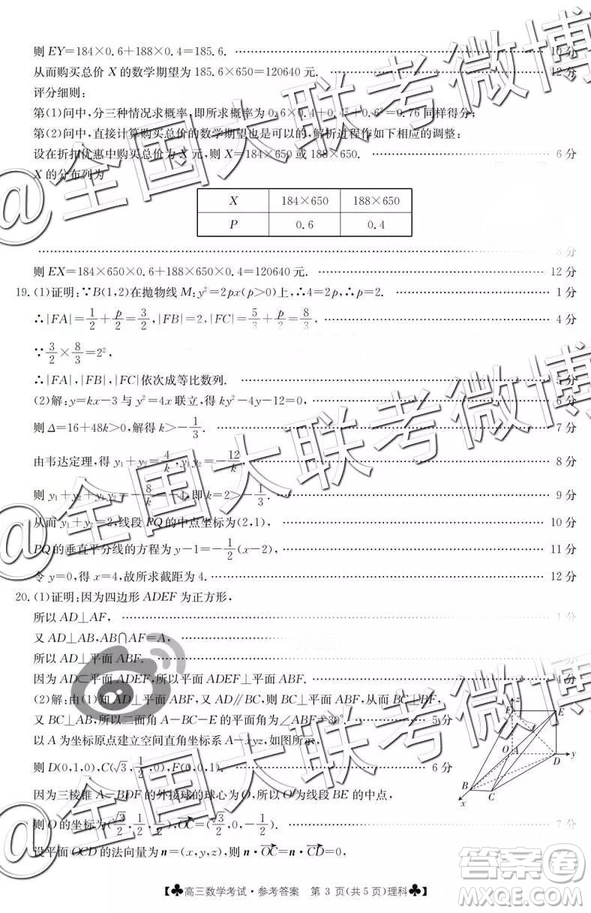 则 EY=184×0.6+188×0.4=185.6. 10 分
从而购买总价 X 的数学期望为 185.6×650=120640 元. 12 分
评分细则:
第(1)问中,分三种情况求概率,即所求概率为 0.6×0.4+0.4²+0.6²=0.76 同样得分;
第(2)问中,直接计算购买总价的数学期望也是可以的,解析过程作如下的调整:
设在折扣优惠中购买总价为 X 元,则 X=184×650 或 188×650. 6 分
X 的分布列为
X 184×650 188×650
P 0.6 0.4
8 分
则 EX=184×650×0.6+188×650×0.4=120640 元. 12 分
19. (1)证明:∵B(1,2)在抛物线 M:y²=2px(p>0)上,∴4=2p,∴p=2. 1 分
∴|FA|=1/2+p/2=3/2,|FB|=2,|FC|=5/3+p/2=8/3. 4 分
∵3/2×8/3=2²,
∴|FA|,|FB|,|FC|依次成等比数列.
(2)解:y=kx-3 与 y²=4x 联立,得 ky²-4y-12=0,
则Δ=16+48k>0,解得 k>-1/3. 7 分
由韦达定理,得 y₁+y₂=4/k,y₁y₂=-12/k 8 分
9 分
从而 y₁+y₂=2,线段 PQ 的中点坐标为(2,1), 10 分
PQ 的垂直平分线的方程为 y-1=-1/2(x-2), 11 分
令 y=0,得 x=4,故所求截距为 4. 12 分
20. (1)证明:因为四边形 ADEF 为正方形,
所以 AD⊥AF, 1 分
又 AD⊥AB,AB∩AF=A,
所以 AD⊥平面 ABF. 3 分
因为 AD⊂平面 ADEF,所以平面 ADEF⊥平面 ABF. 4 分
(2)解:由(1)知 AD⊥平面 ABF,又 AD∥BC,则 BC⊥平面 ABF,
则 BC⊥AB,所以二面角 A-BC-E 的平面角为∠ABF=30°. 5 分
以 A 为坐标原点建立空间直角坐标系 A-xyz,如图所示,
则 D(0,1,0),C(√3,1/2,0),F(0,0,1). 6 分
因为三棱锥 A-BDF 的外接球的球心为 O,所以 O 为线段 BE 的中点,
则 O 的坐标为(√3/2,1/2,1/2),OC=(√3/2,0,-1/2). 7 分
设平面 OCD 的法向量为 n=(x,y,z),则 n·OC=n·CD=0,
F E A D y B C x
♣高三数学考试·参考答案 第 3 页(共 5 页)理科♣
@全国大联考微博
@全国大联考微博